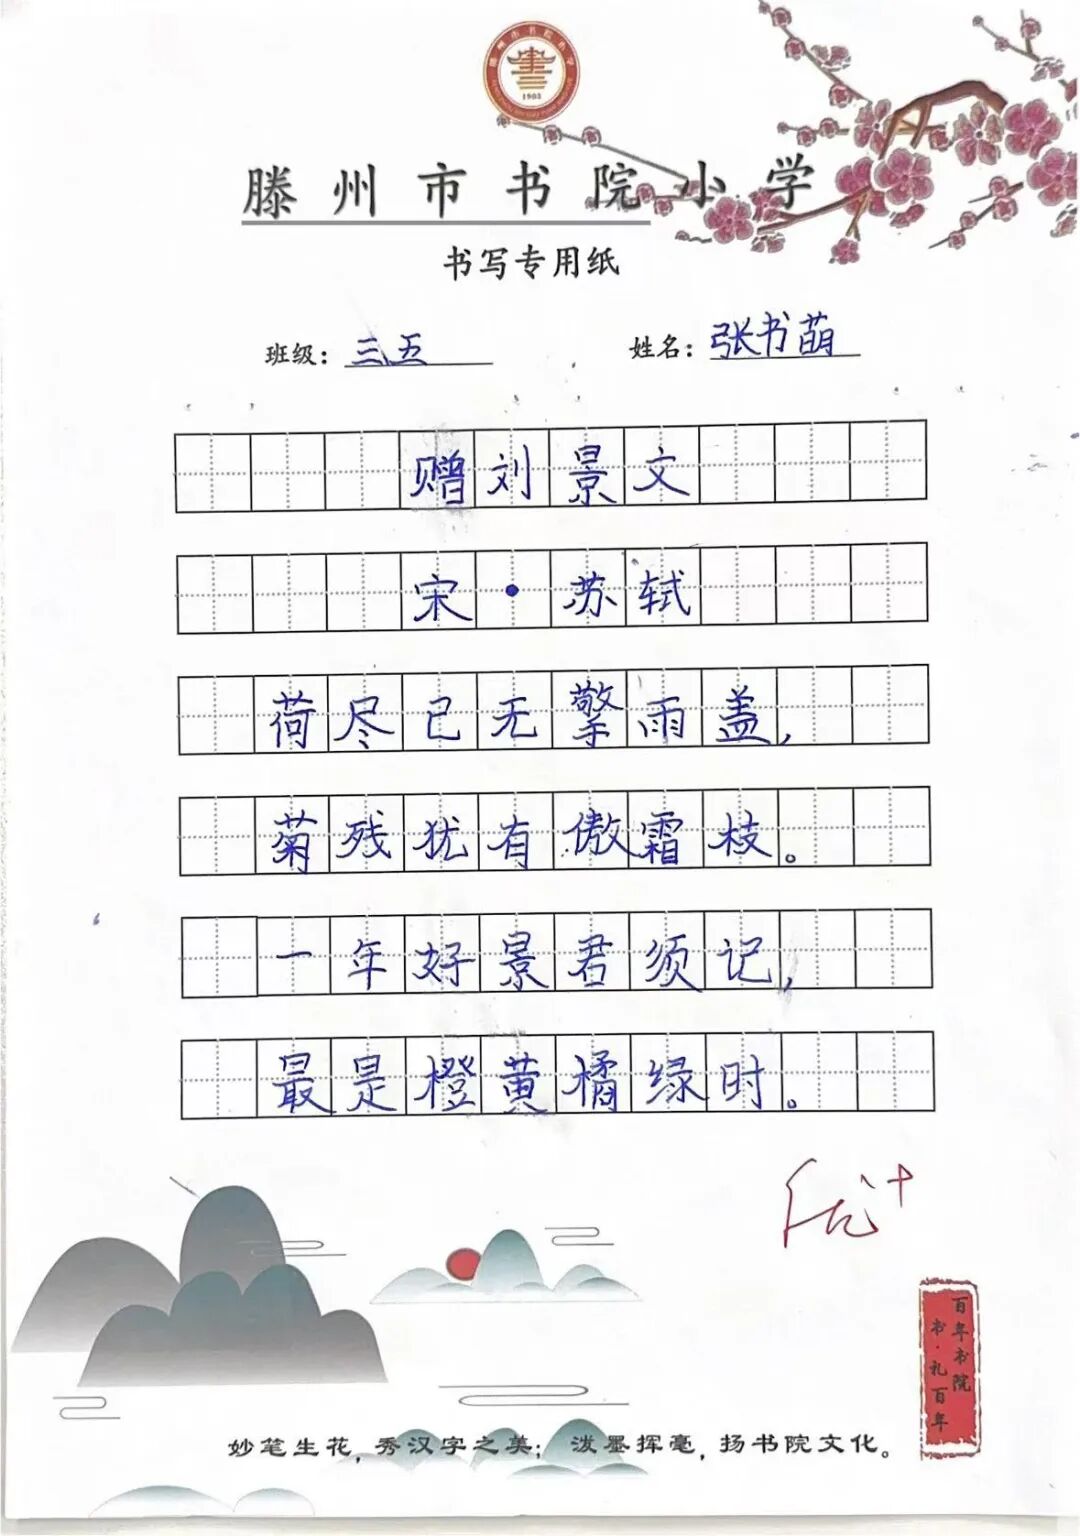 1903
滕州市书院小学
书写专用纸
班级：三五 姓名：张书萌
赠刘景文
宋·苏轼
荷尽已无擎雨盖，
菊残犹有傲霜枝。
一年好景君须记，
最是橙黄橘绿时。
优+
百年书院
书·礼百年
妙笔生花，秀汉字之美；泼墨挥毫，扬书院文化。